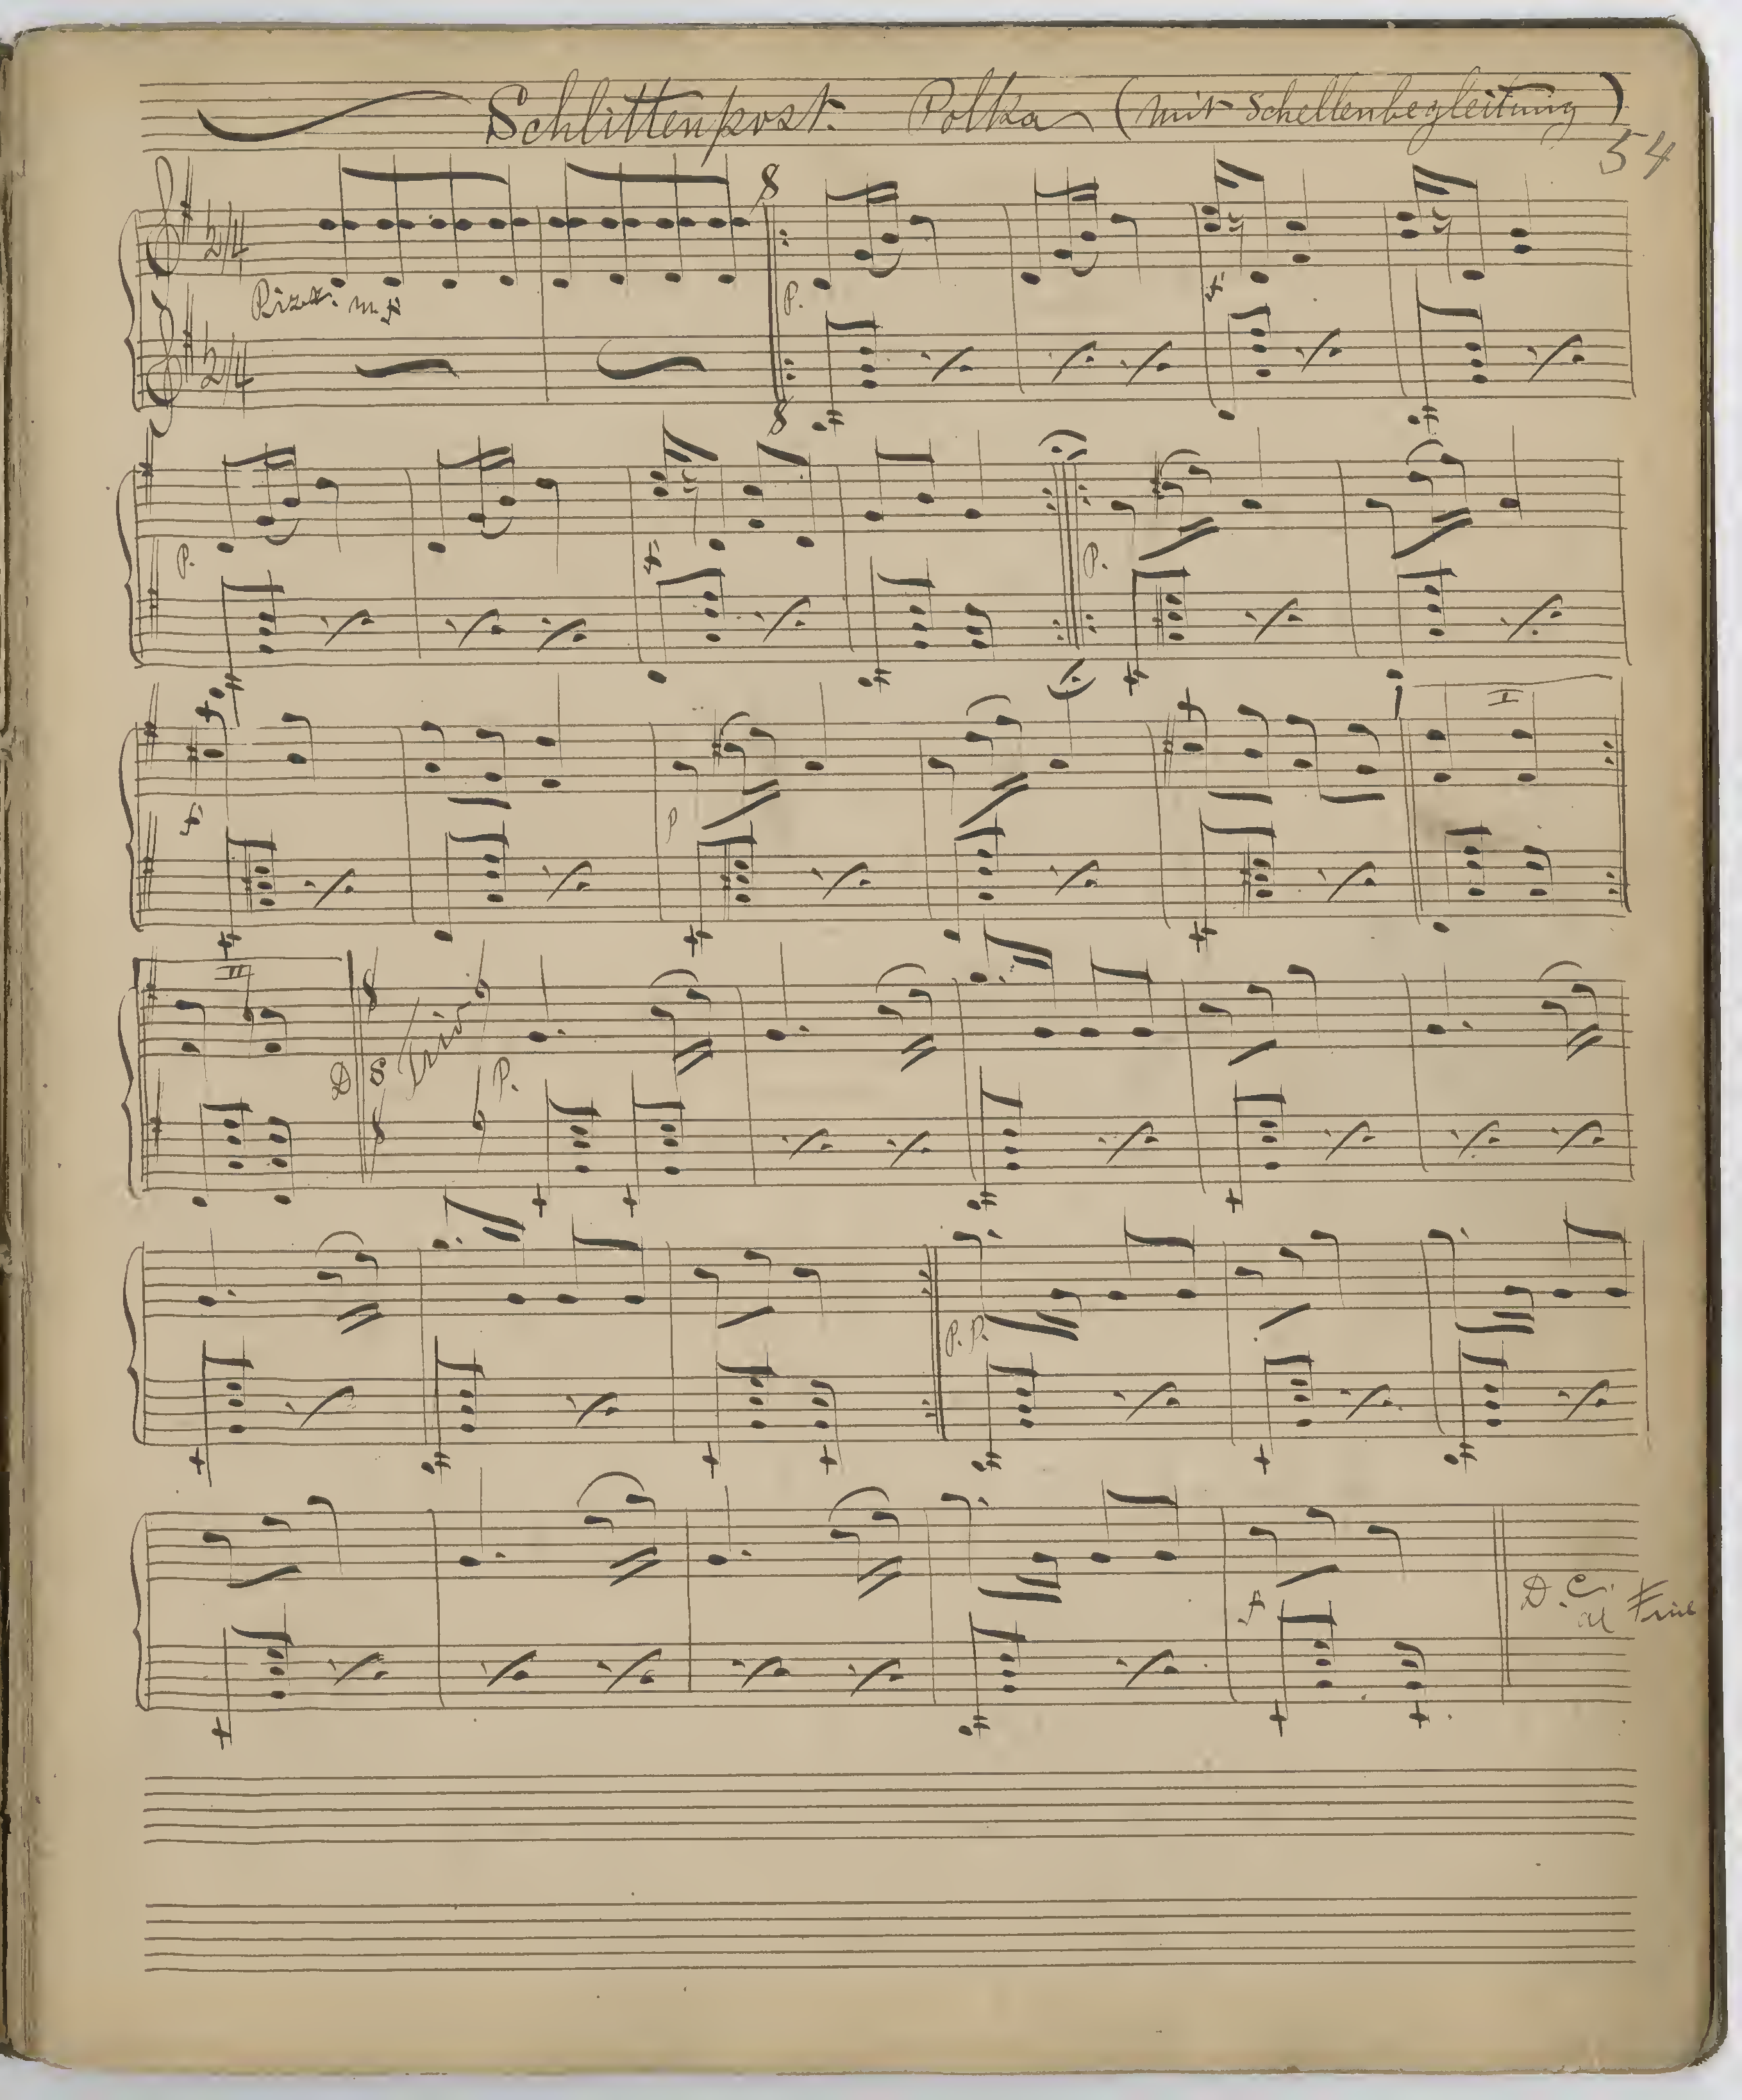 Schlittenpost. Polka (mit Schellenbegleitung)
54
2/4
Pizz. mf
P.
f
2/4
P.
f
P.
f
p
I
II
D S Trio P.
P.P.
f
D.C. al Fine